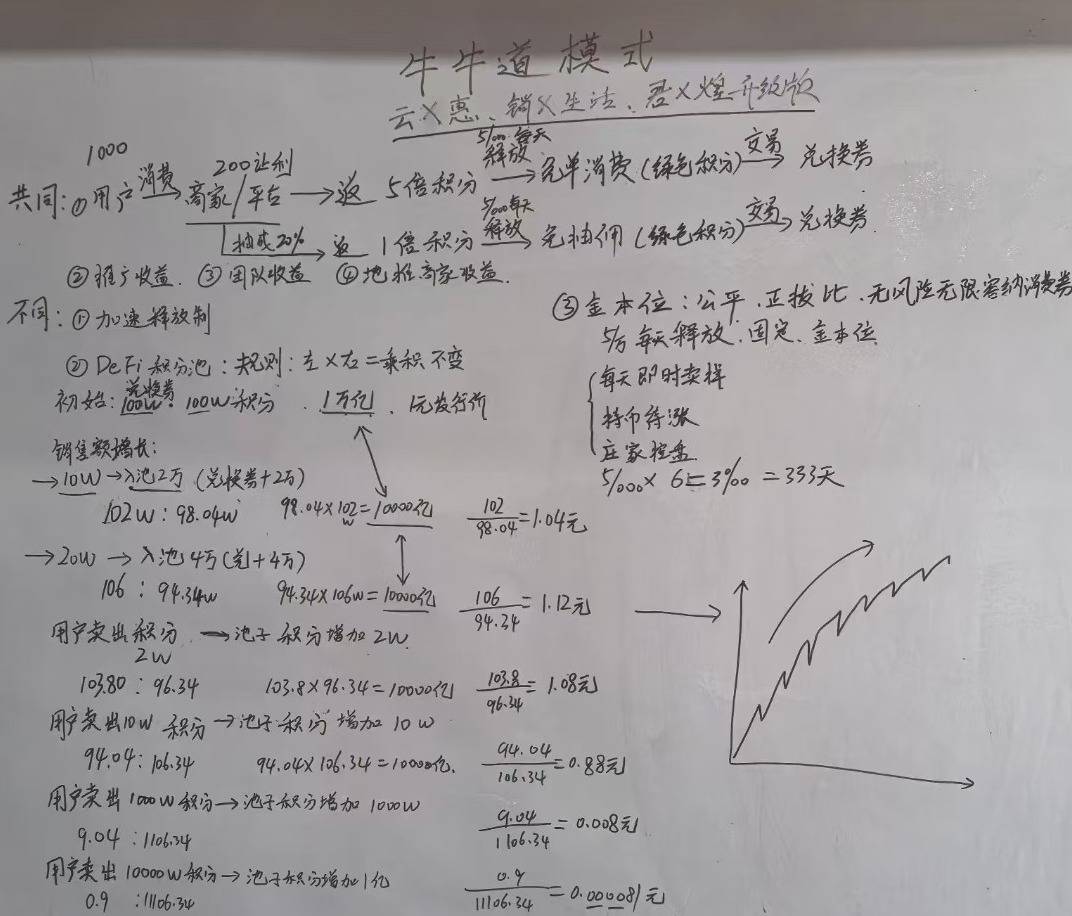 牛牛道模式
云X惠、销X生活、君X煌升级版
1000
共同：①用户 消费→ 商家/平台 200让利 → 返 5倍积分 5/000每天 释放→ 免单消费(绿色积分) 交易→ 兑换券
抽成20% → 返 1倍积分 5/000每天 释放→ 免抽佣(绿色积分) 交易→ 兑换券
②推广收益. ③团队收益 ④地推商家收益.
不同：①加速释放制
②DeFi积分池：规则：左×右=乘积不变
初始：兑换券100W：100W积分. 1万亿. 1元发行价
销售额增长：
→10W→入池2万(兑换券+2万)
102W：98.04W 98.04×102W=10000亿 102/98.04=1.04元
→20W→入池4万(兑+4万)
106：94.34W 94.34×106W=10000亿 106/94.34=1.12元
用户卖出积分2W→池子积分增加2W.
103.80：96.34 103.8×96.34=10000亿 103.8/96.34=1.08元
用户卖出10W积分→池子积分增加10W
94.04：106.34 94.04×106.34=10000亿. 94.04/106.34=0.88元
用户卖出1000W积分→池子积分增加1000W
9.04：1106.34 9.04/1106.34=0.008元
用户卖出10000W积分→池子积分增加1亿
0.9：11106.34 0.9/11106.34=0.000081元
③金本位：公平.正拔比.无风险无限容纳消费券
5/万每天释放.固定.金本位
每天即时卖掉
持币待涨
庄家控盘
5/000×6=3‰=333天